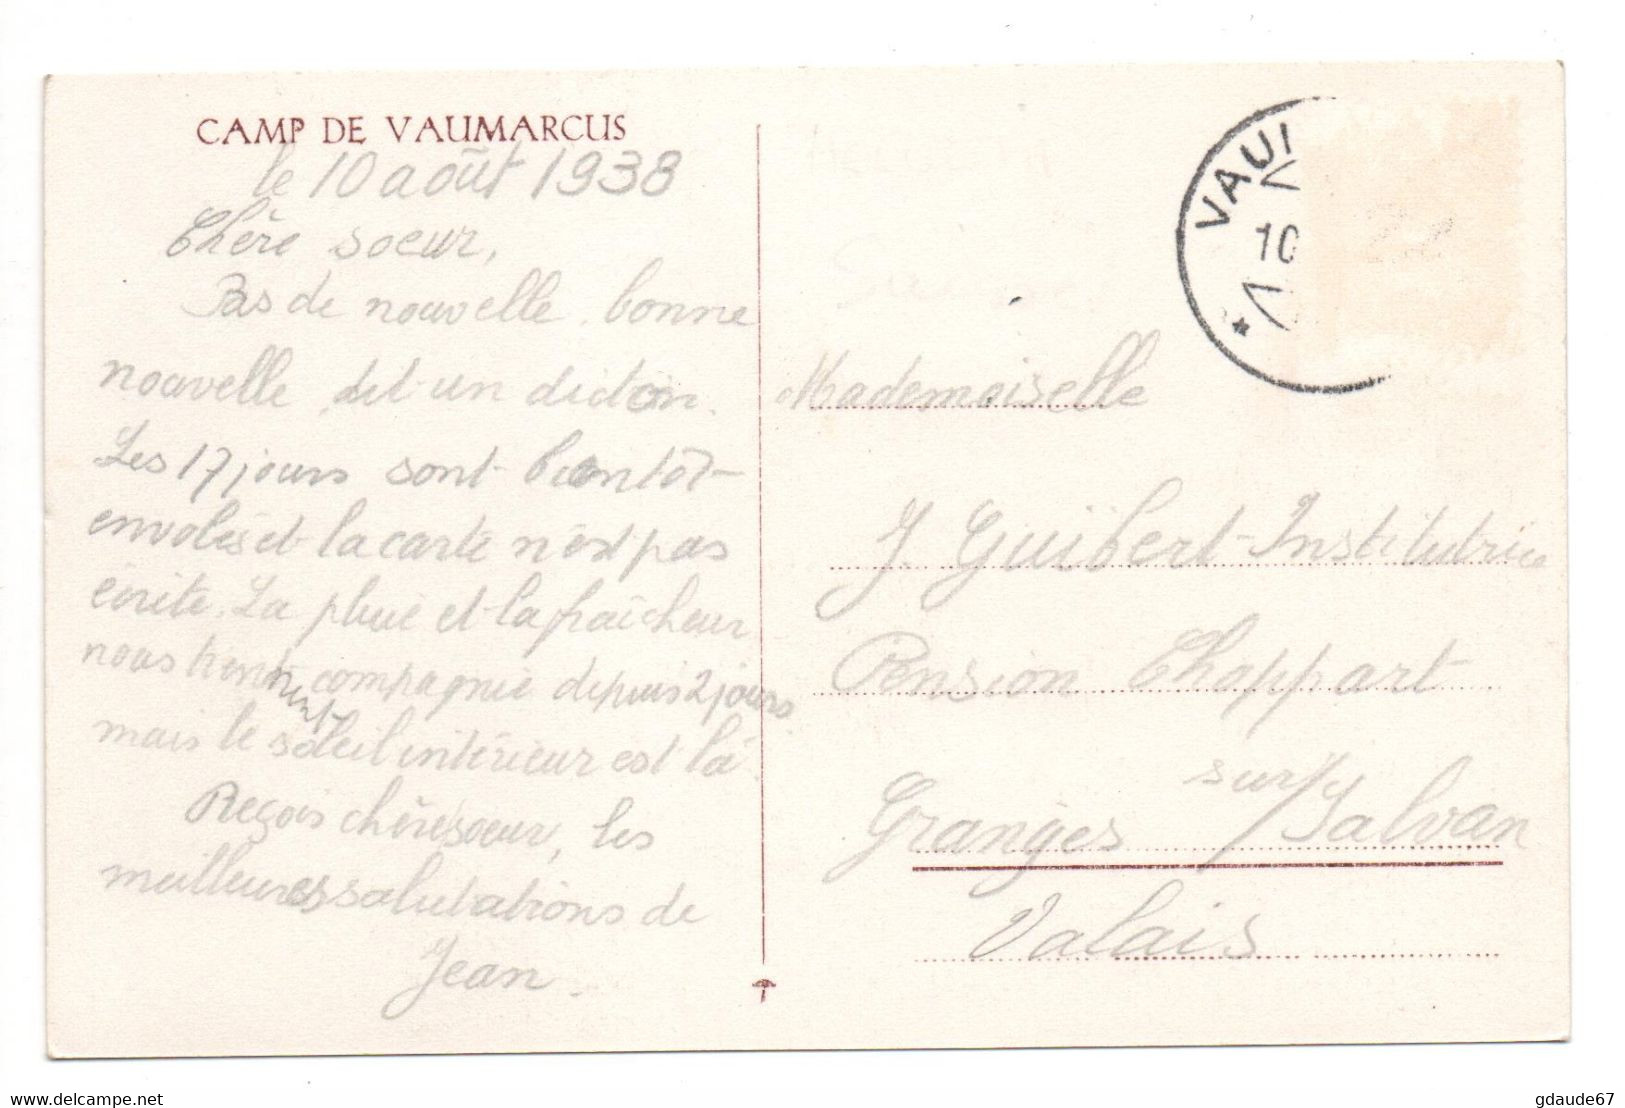 CAMP DE VAUMARCUS
le 10 août 1938
Chère soeur,
Pas de nouvelle, bonne
nouvelle, dit un dicton.
Les 17 jours sont bientôt
envolés et la carte n'est pas
écrite. La pluie et la fraîcheur
nous tiennent compagnie depuis 2 jours
mais le soleil intérieur est là.
Reçois chère soeur, les
meilleures salutations de
Jean.
VAUM
10
Mademoiselle
J. Guibert-Institutrice
Pension Chappart
sur/Salvan
Granges
Valais
delcampe.net
gdaude67